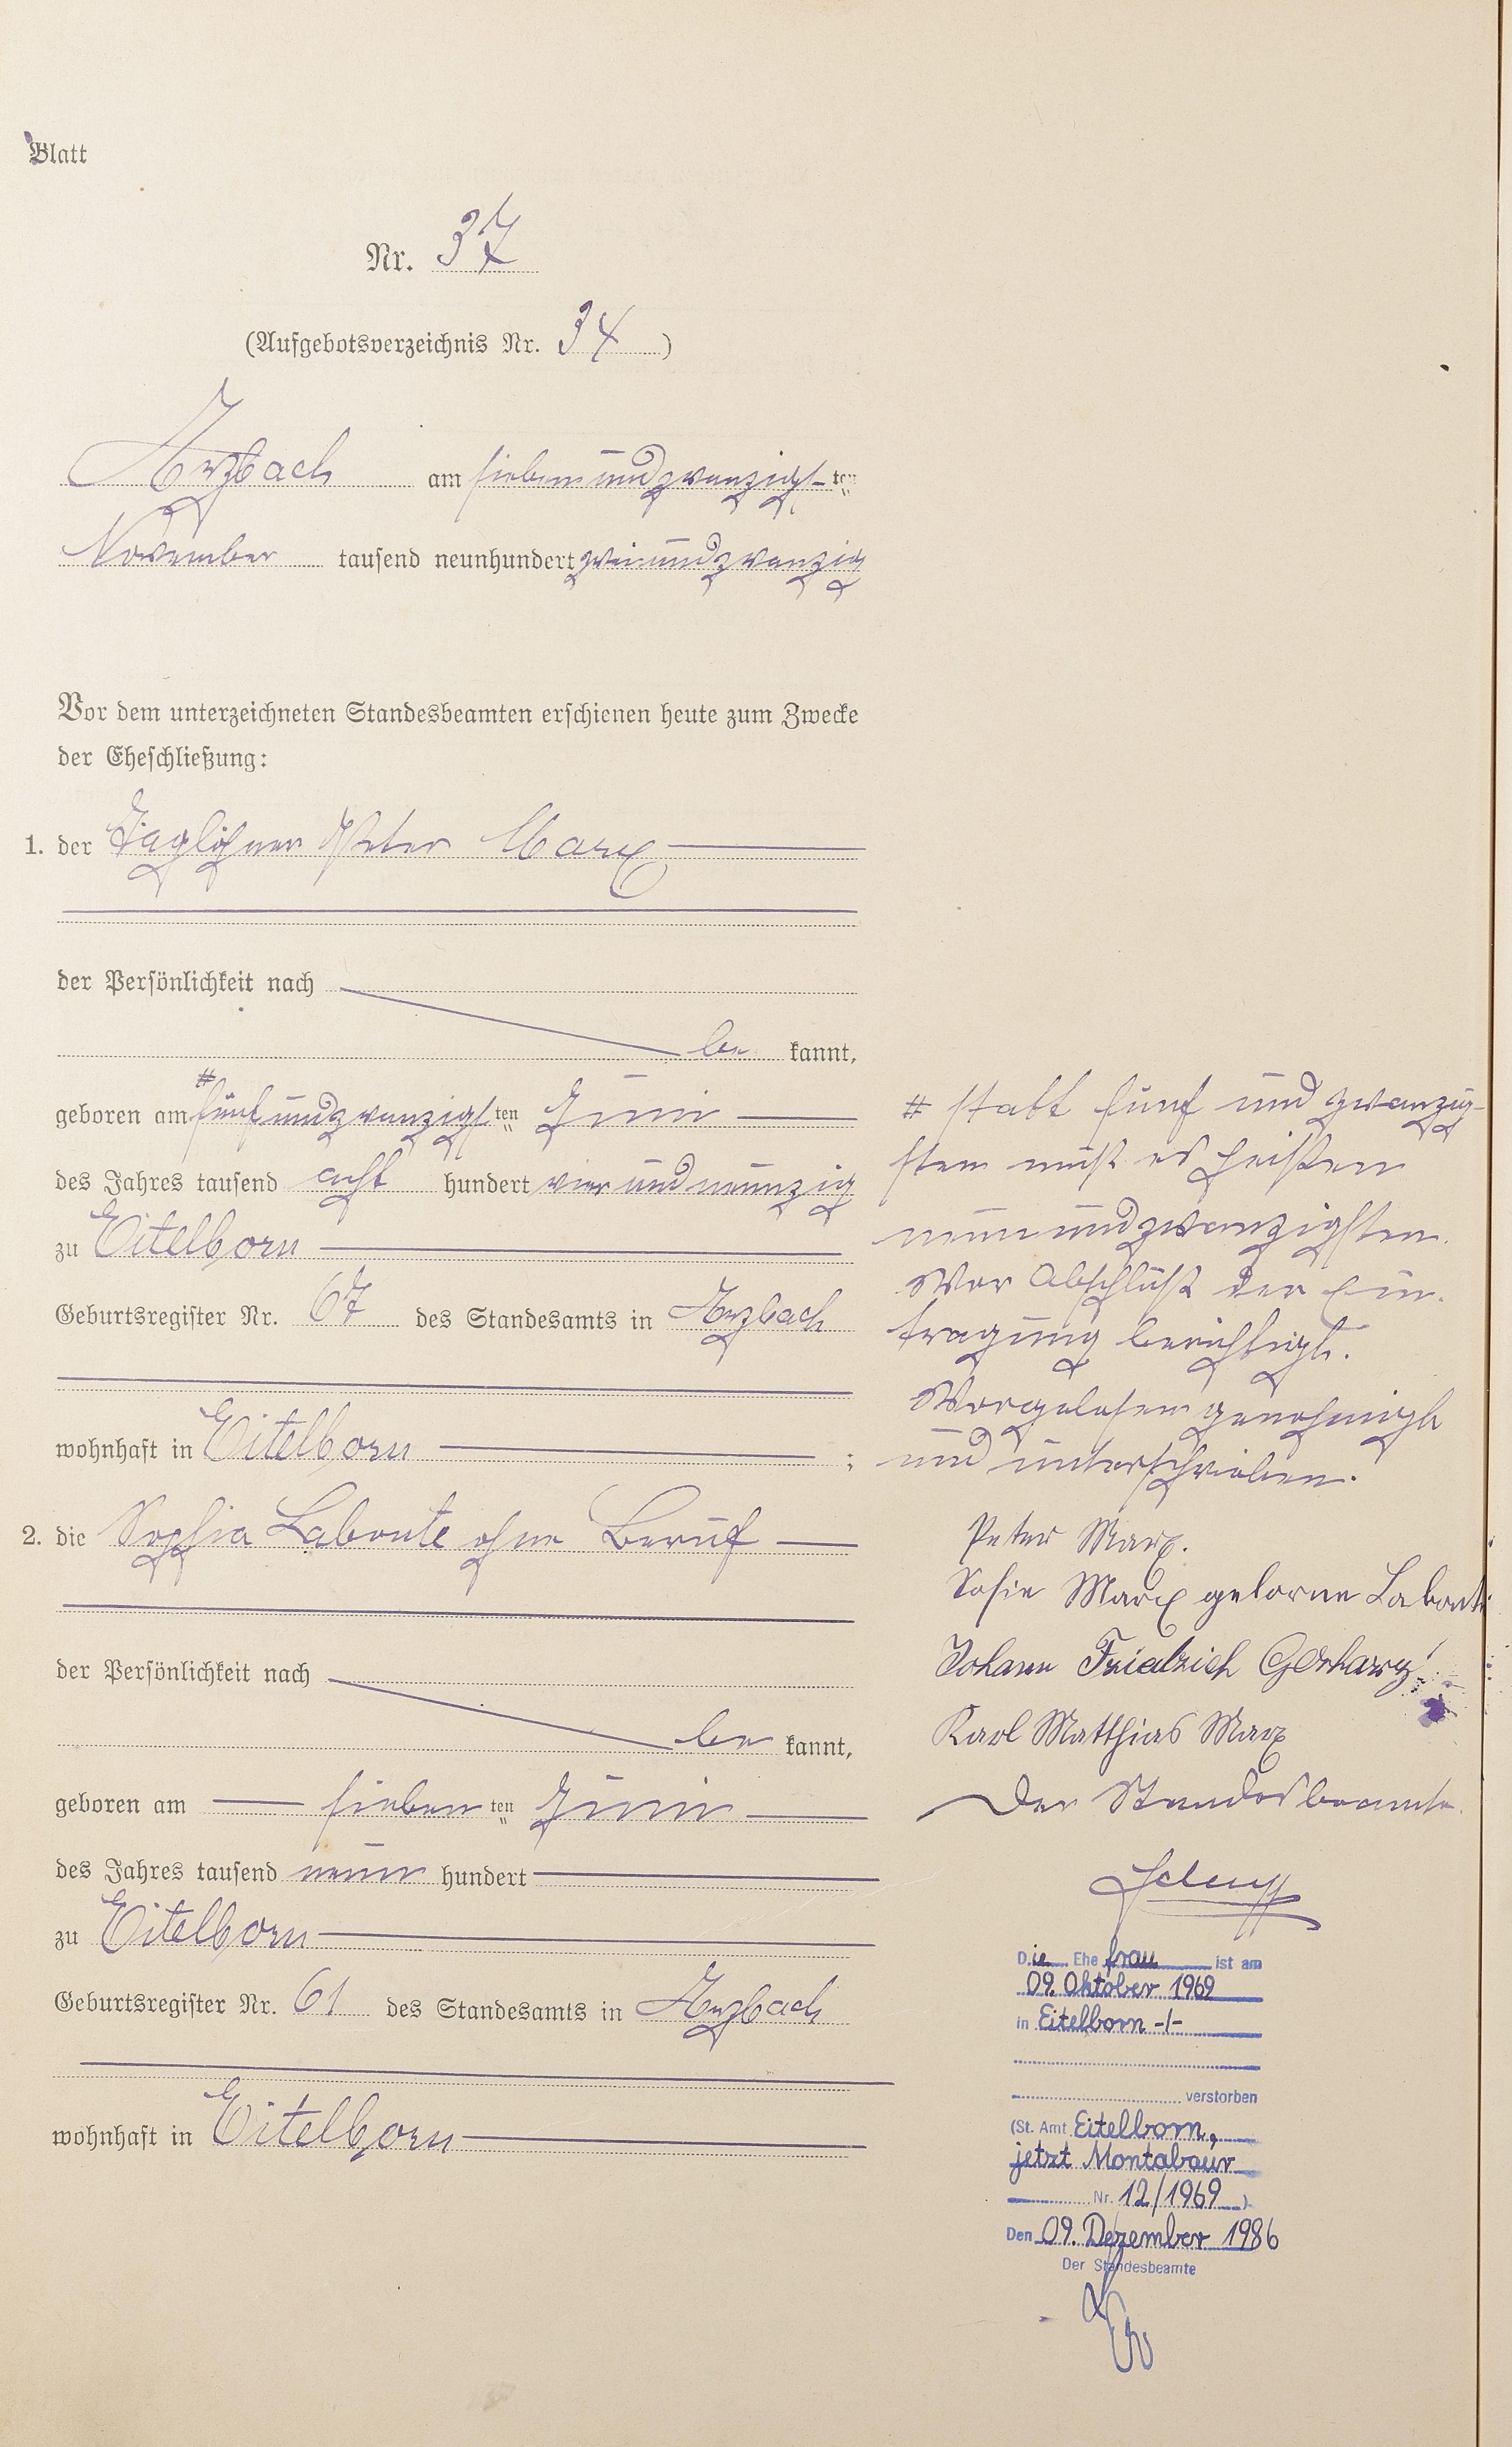 Blatt
Nr. 37
(Aufgebotsverzeichnis Nr. 34)
Arzbach am siebenundzwanzigsten
November tausend neunhundert zweiundzwanzig
Vor dem unterzeichneten Standesbeamten erschienen heute zum Zwecke
der Eheschließung:
1. der Taglöhner Peter Marx
der Persönlichkeit nach
be kannt,
geboren am # fünfundzwanzigsten Juni
des Jahres tausend acht hundert vier und neunzig
zu Eitelborn
Geburtsregister Nr. 67 des Standesamts in Arzbach
wohnhaft in Eitelborn ;
2. die Sophia Labonte ohne Beruf
der Persönlichkeit nach
be kannt,
geboren am sieben ten Juni
des Jahres tausend neun hundert
zu Eitelborn
Geburtsregister Nr. 61 des Standesamts in Arzbach
wohnhaft in Eitelborn
# statt fünf und zwanzig-
sten muß es heißen
neunundzwanzigsten.
Vor Abschluß der Ein-
tragung berichtigt.
Vorgelesen genehmigt
und unterschrieben.
Peter Marx.
Sofie Marx geborne Labonte
Johann Friedrich
Karl Matthias Marx
Der Standesbeamte.
Die Ehe frau ist am
09. Oktober 1969
in Eitelborn -/-
verstorben
(St. Amt Eitelborn,
jetzt Montabaur
Nr. 12/1969 )
Den 09. Dezember 1986
Der Standesbeamte